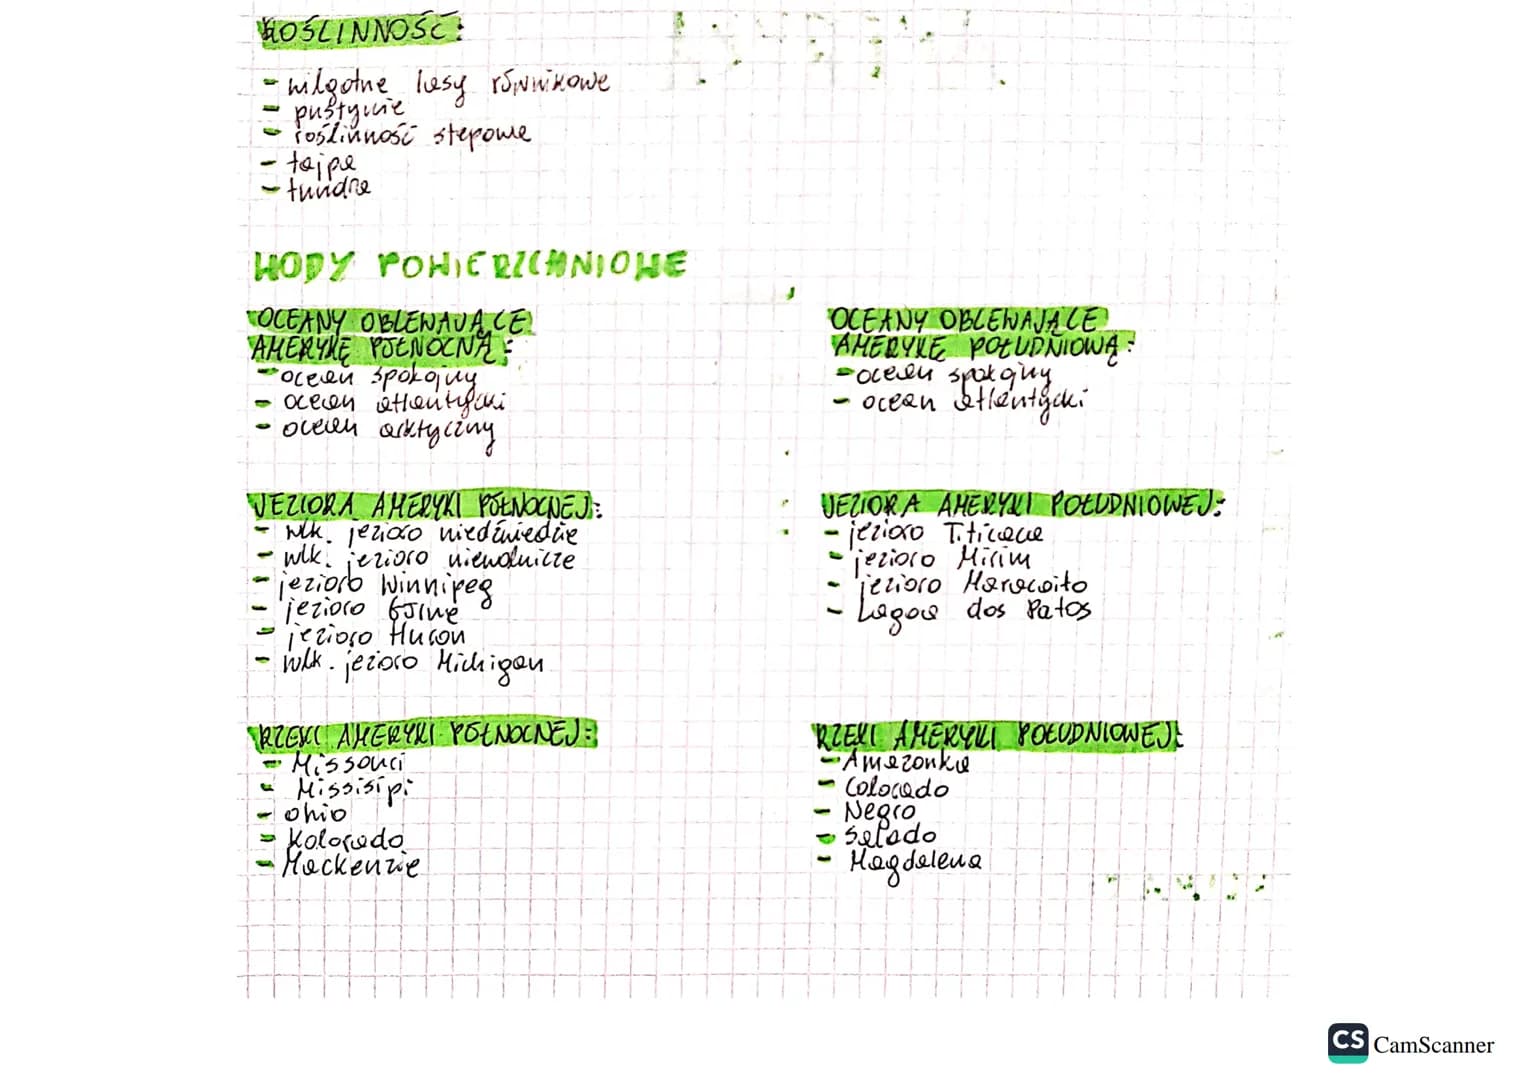 ROŚLINNOŚĆ:
- wilgotne lasy równikowe
- pustynie
- roślinność stepowa
- tajga
- tundra
WODY POWIERZCHNIOWE
OCEANY OBLEWAJĄCE
AMERYKĘ PÓŁNOCNĄ:
- ocean spokojny
- ocean atlantycki
- ocean arktyczny
OCEANY OBLEWAJĄCE
AMERYKĘ POŁUDNIOWĄ:
- ocean spokojny
- ocean atlantycki
JEZIORA AMERYKI PÓŁNOCNEJ:
- wlk. jezioro niedźwiedzie
- wlk. jezioro niewolnicze
- jezioro Winnipeg
- jezioro Górne
- jezioro Huron
- wlk. jezioro Michigan
JEZIORA AMERYKI POŁUDNIOWEJ:
- jezioro Titicaca
- jezioro Mirim
- jezioro Maracaito
- Lagoa dos Patos
RZEKI AMERYKI PÓŁNOCNEJ:
- Missouri
- Missisipi
- Ohio
- Kolorado
- Mackenzie
RZEKI AMERYKI POŁUDNIOWEJ:
- Amazonka
- Colorado
- Negro
- Salado
- Magdalena
CS CamScanner